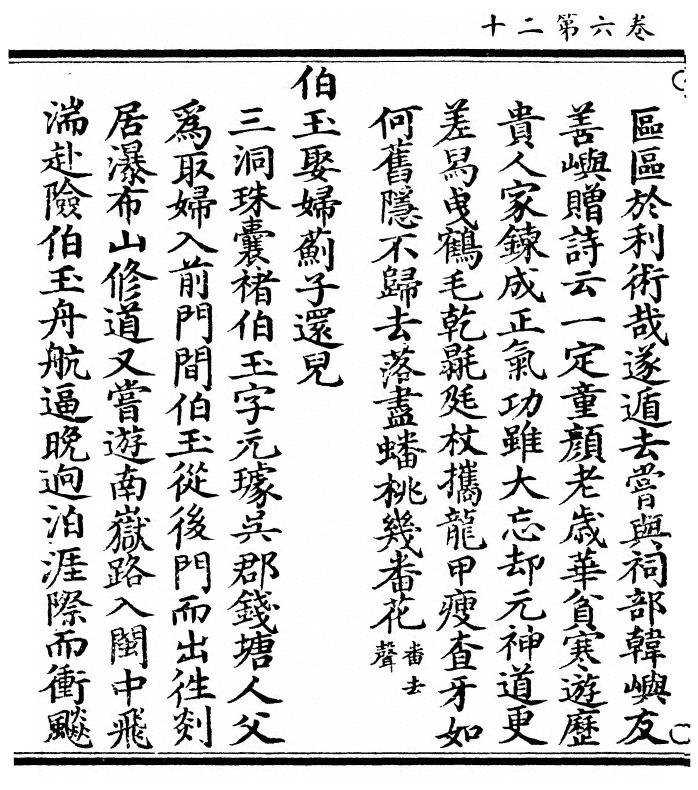 卷六第二十
區區於利術哉遂遁去嘗與祠部韓嶼友
善嶼贈詩云一定童顏老歲華貧寒遊歷
貴人家鍊成正氣功雖大忘却元神道更
差舄曳鶴毛乾毾㲪杖攜龍甲瘦查牙如
何舊隱不歸去落盡蟠桃幾番花番去聲
伯玉娶婦薊子還兒
三洞珠囊褚伯玉字元璩吳郡錢塘人父
爲取婦入前門間伯玉從後門而出徃剡
居瀑布山修道又嘗遊南嶽路入閩中飛
湍赴險伯玉舟航逼晚逈泊涯際而衝飈